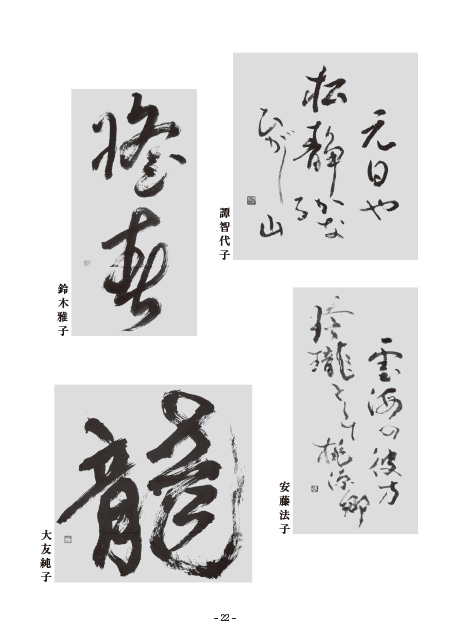 元日や
松静かなる
ひがし山
譚智代子
春
鈴木雅子
雲海の彼方
玲瓏として桃源郷
安藤法子
龍
大友純子
- 22 -